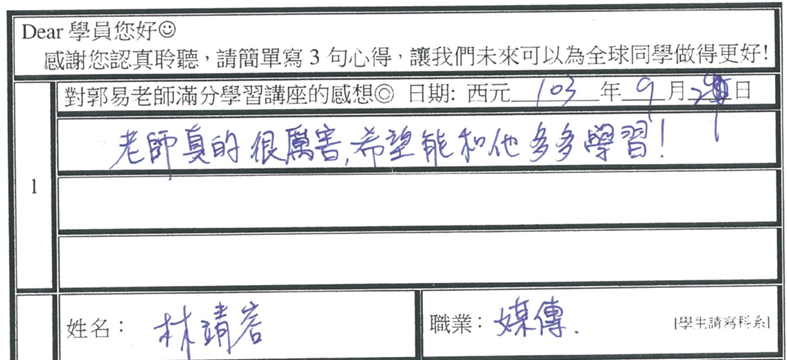 Dear 學員您好☺
感謝您認真聆聽，請簡單寫 3 句心得，讓我們未來可以為全球同學做得更好!
對郭易老師滿分學習講座的感想◎ 日期: 西元 103 年 9 月 日
1
老師真的很厲害,希望能和他多多學習!
姓名： 林靖容
職業： 媒傳. [學生請寫科系]